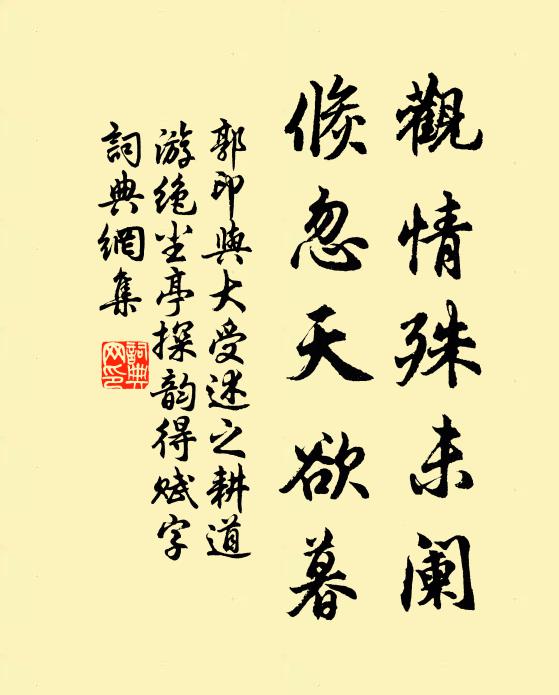 觀情殊未阑
倏忽天欲暮
郭印與大受述之耕道
游绝尘亭探韵得赋字
詞典網集
詞典網印